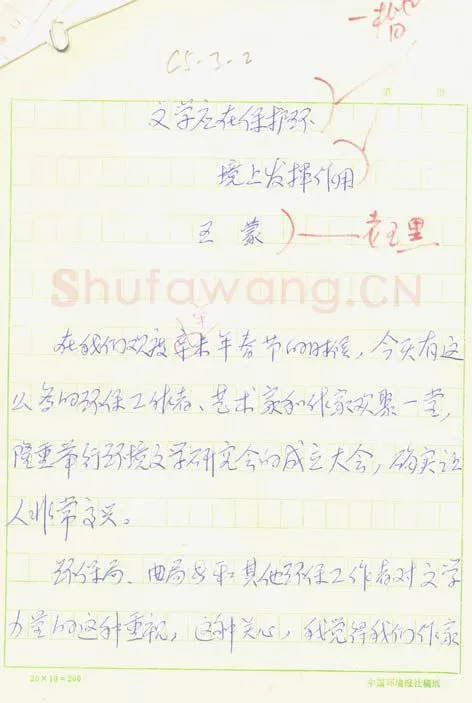 C5-3-2
文学应在保护环
境上发挥作用
王蒙
Shufawang.CN
在我们欢度辛未年春节的时候，今天有这
么多的环保工作者、艺术家和作家欢聚一堂，
隆重举行环境文学研究会的成立大会，确实让
人非常高兴。
环保局、曲局长和其他环保工作者对文学
力量的这种重视，这种关心，我觉得我们作家
20×10=200
中国环境报社稿纸